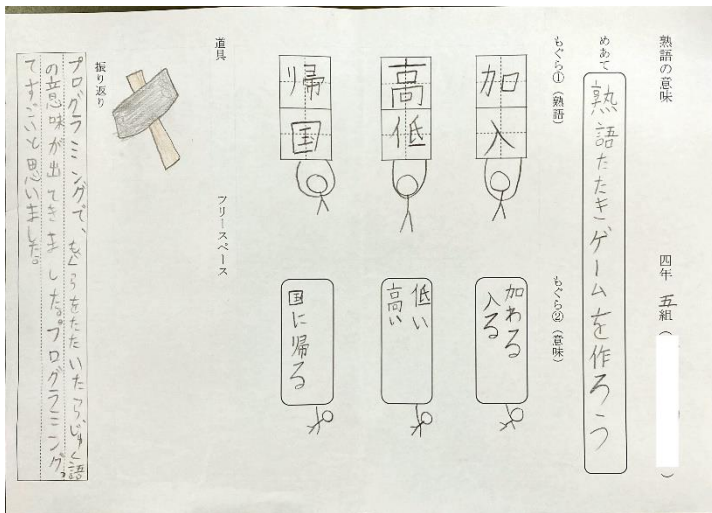 熟語の意味
四年 五組（ ）
めあて
熟語たたきゲームを作ろう
もぐら①（熟語）
もぐら②（意味）
加入
加わる
入る
高低
低い
高い
帰国
国に帰る
道具
フリースペース
振り返り
プログラミングで、もぐらをたたいたら、じゅく語
の意味が出てきました。プログラミングっ
てすごいと思いました。